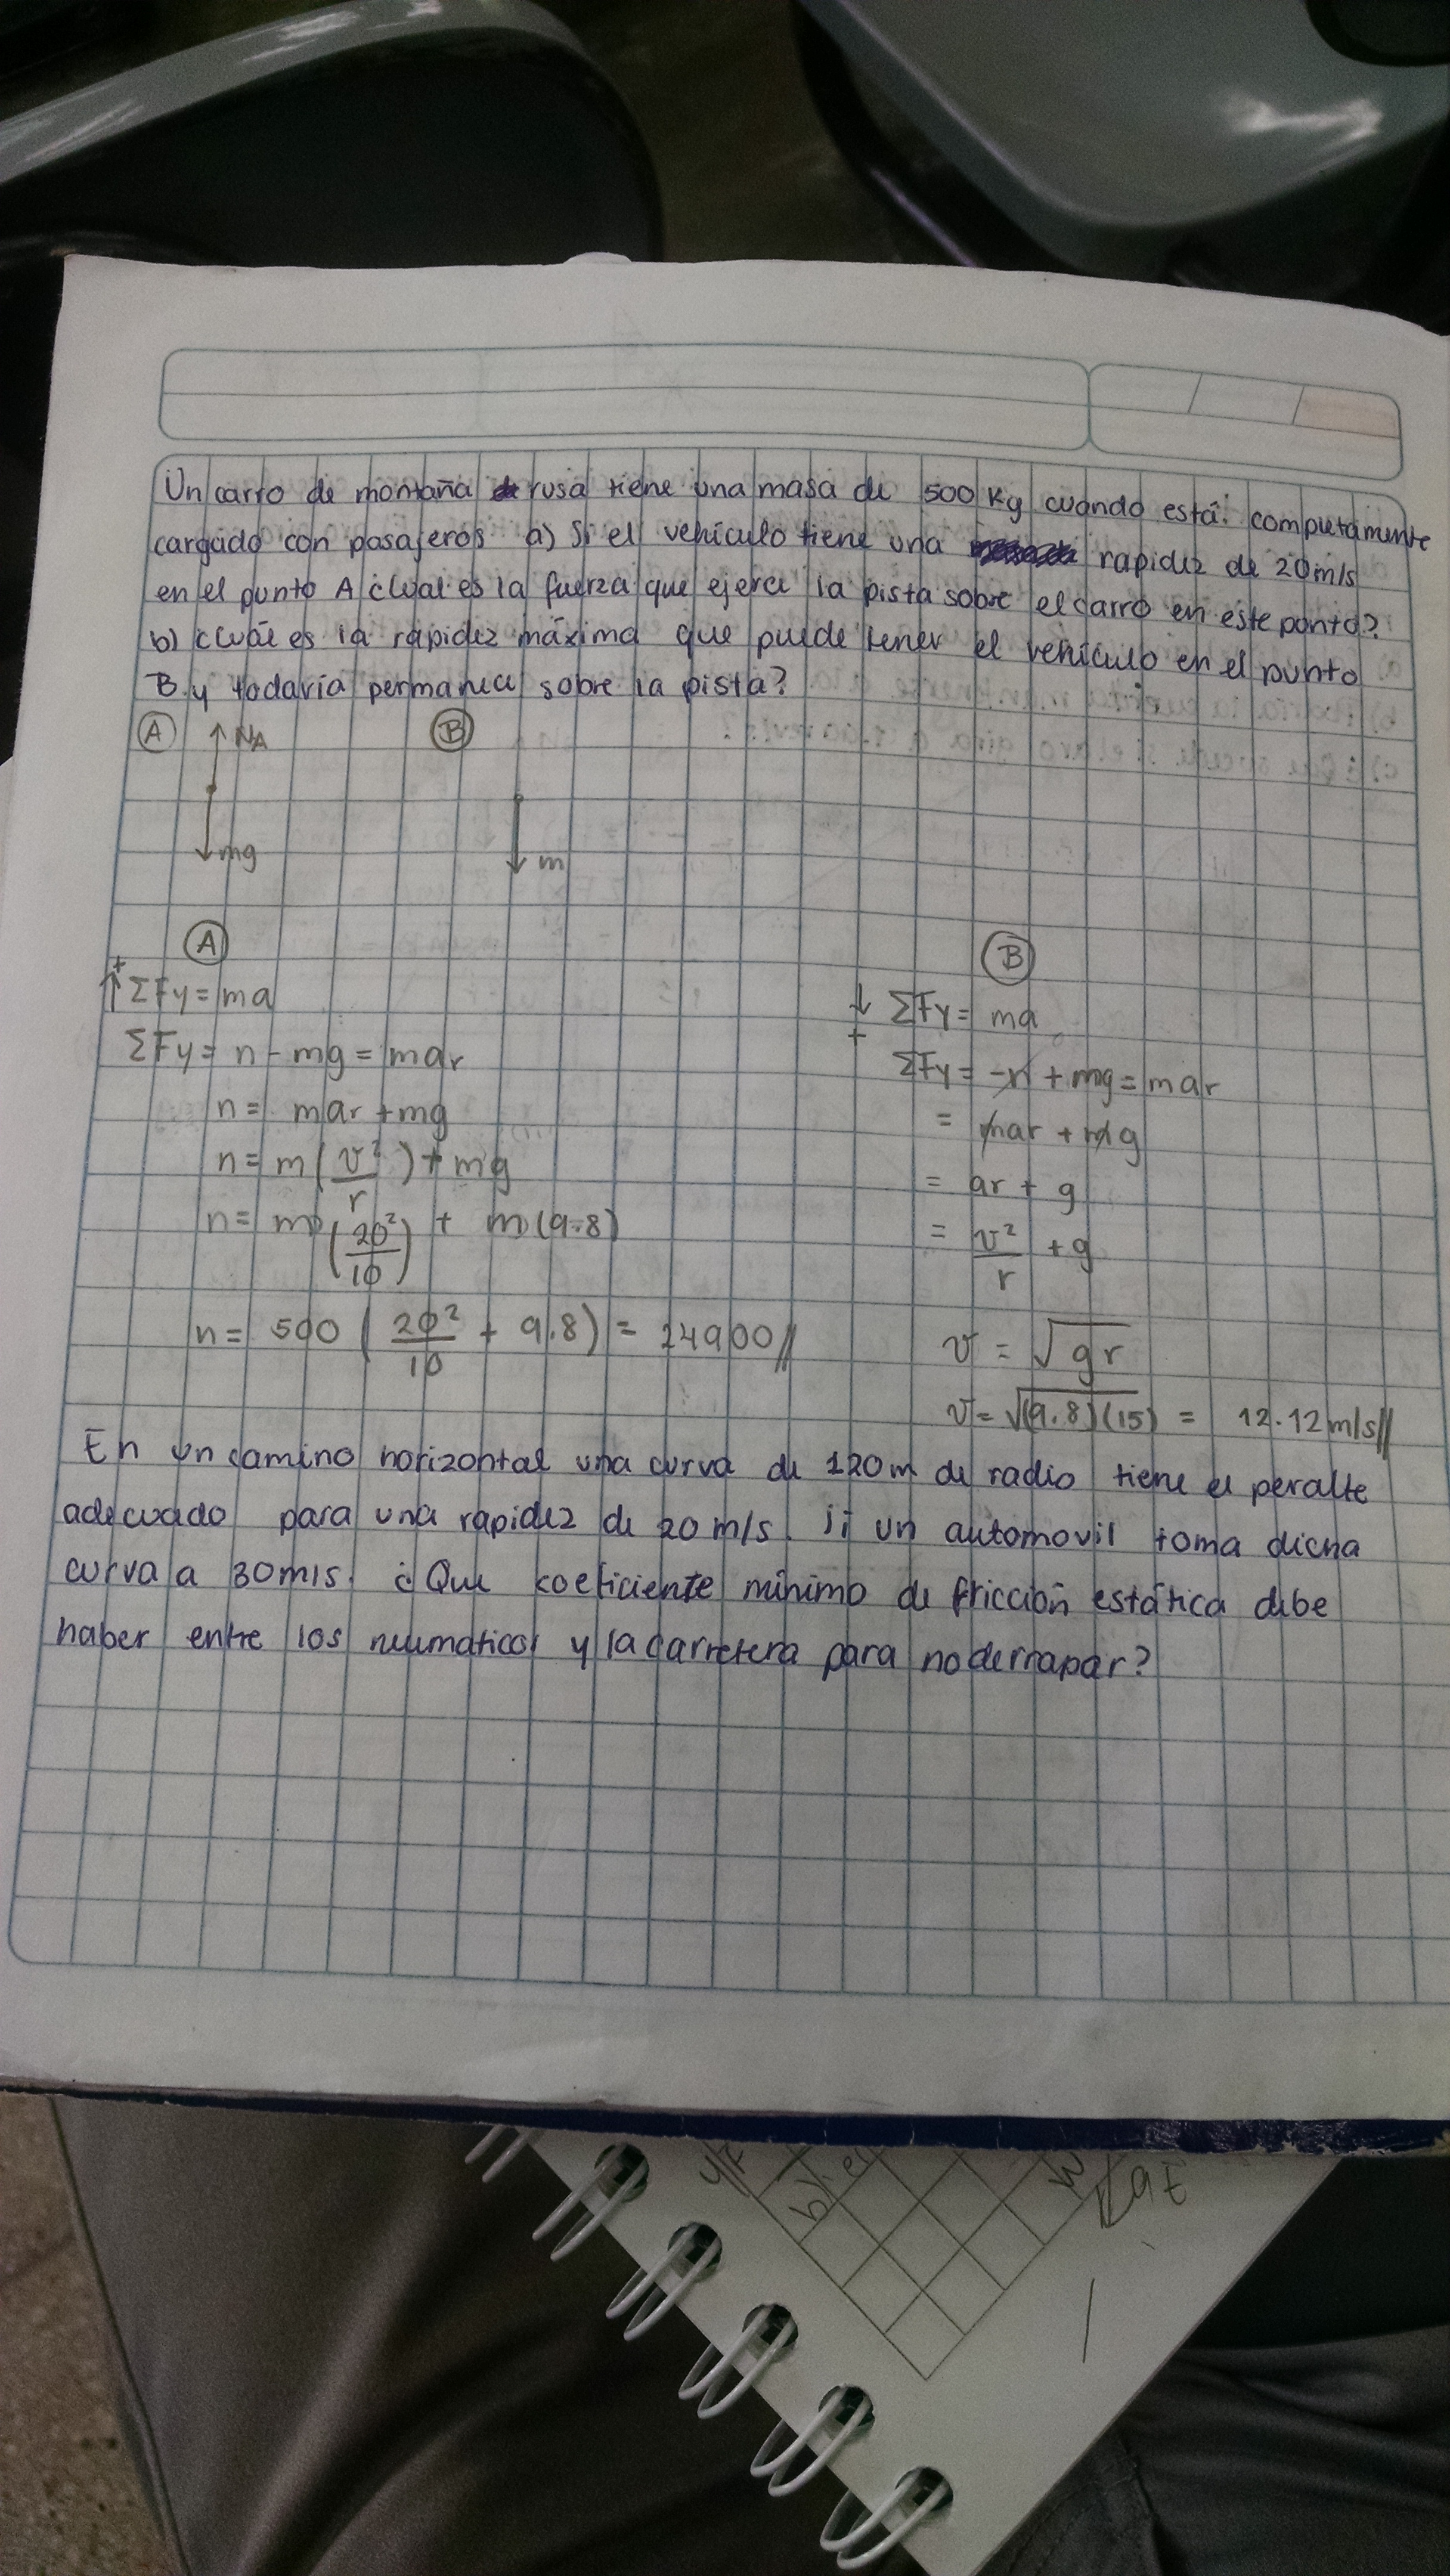 Un carro de montaña rusa tiene una masa de 500 Kg cuando está completamente
cargado con pasajeros a) Si el vehículo tiene una rapidez de 20m/s
en el punto A ¿Cual es la fuerza que ejerce la pista sobre el carro en este punto?
b) ¿Cuál es la rapidez máxima que puede tener el vehículo en el punto
B y todavía permanece sobre la pista?
A NA B
mg m
A B
+↑ ΣFy = ma
↓+ ΣFy = ma
ΣFy = n - mg = mar
ΣFy = -n + mg = mar
n = mar + mg
= mar + mg
n = m (v²/r) + mg
= ar + g
n = m (20²/10) + m(9.8)
= v²/r + g
n = 500 (20²/10 + 9.8) = 24900//
v = √gr
v = √(9.8)(15) = 12.12 m/s//
En un camino horizontal una curva de 120m de radio tiene el peralte
adecuado para una rapidez de 20 m/s. Si un automovil toma dicha
curva a 30m/s. ¿Que coeficiente mínimo de fricción estática debe
haber entre los neumaticos y la carretera para no derrapar?